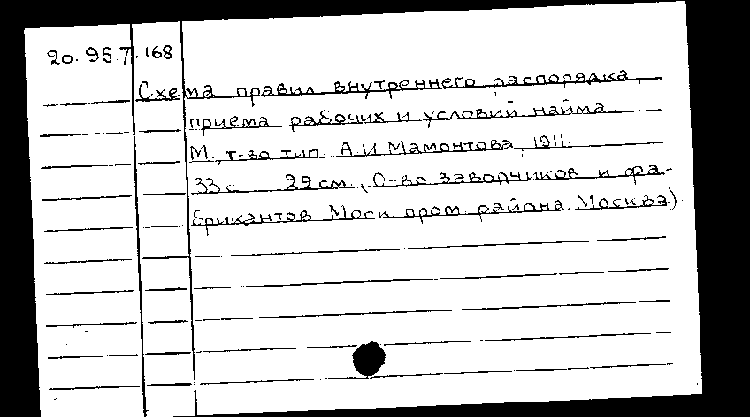 20.95.7.168
Схема правил внутреннего распорядка,
приема рабочих и условий найма
М., т-во тип. А.И Мамонтова, 1911.
33 с 29 см. (О-во заводчиков и фа-
брикантов Моск пром района. Москва)